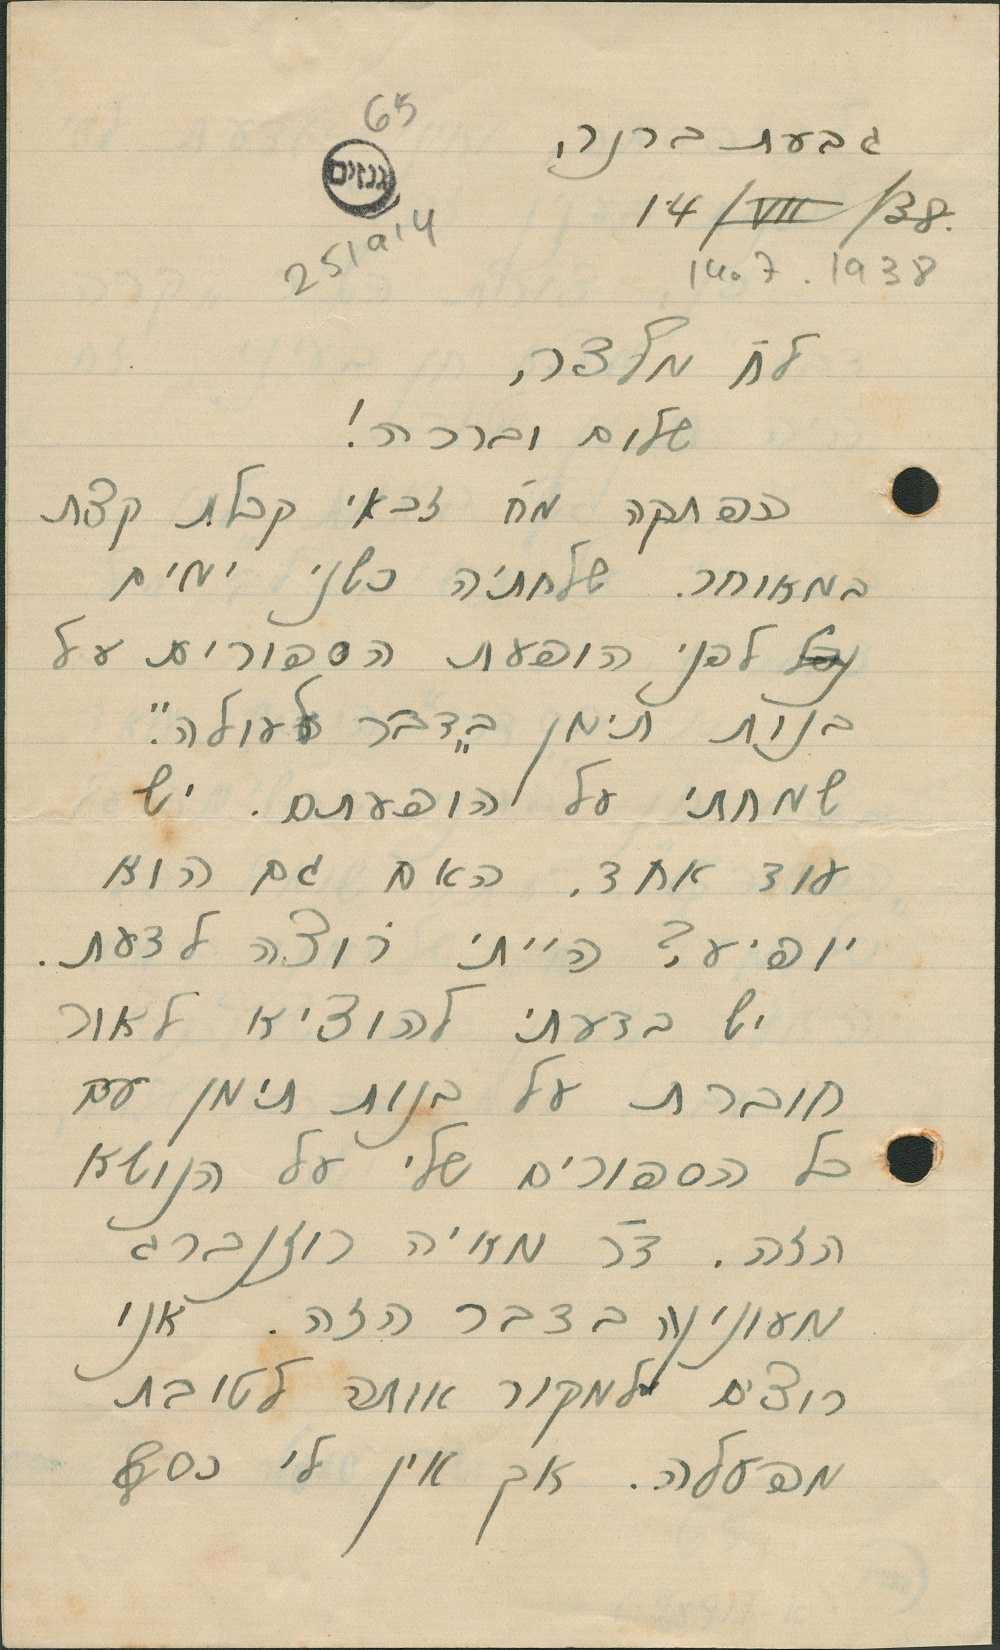 65
גנזים
251914
גבעת ברנר,
14/VII/38.
14.7.1938
לח' מלצר,
שלום וברכה!
הפתקה מח' זכאי קבלת קצת
במאוחר. שלחתיה כשני ימים
לפני הופעת הספורים על
בנות תימן ב"דבר לעולה".
שמחתי על הופעתם. יש
עוד אחד. האם גם הוא
יופיע? הייתי רוצה לדעת.
יש בדעתי להוציא לאור
חוברת על בנות תימן עם
כל הספורים שלי על הנושא
הזה. ד"ר מאיה רוזנברג
מעונינה בדבר הזה. אני
רוצים למכור אותה לטובת
מפעלה. אך אין לי כסף